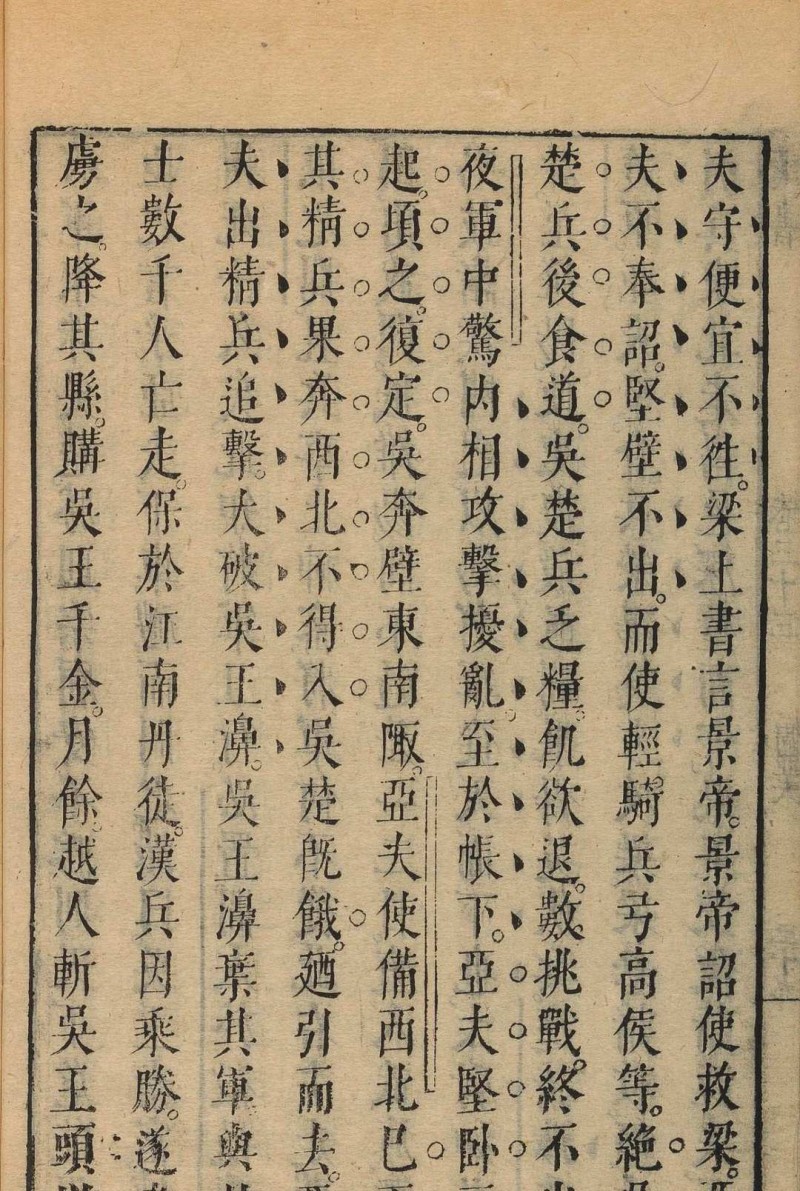 夫守便宜不徃。梁上書言景帝。景帝詔使救梁。
夫不奉詔。堅壁不出。而使輕騎兵弓高侯等。絶
楚兵後食道。吳楚兵乏糧。飢欲退。數挑戰。終不
夜軍中驚内相攻擊擾亂。至於帳下。亞夫堅卧
起。頃之。復定。吳奔壁東南陬。亞夫使備西北巳
其精兵果奔西北不得入吳楚旣餓。廼引而去。
夫出精兵追擊。大破吳王濞。吳王濞棄其軍與
士數千人亡走。保於江南丹徒。漢兵因乘勝。遂
虜之。降其縣。購吳王千金。月餘。越人斬吳王頭